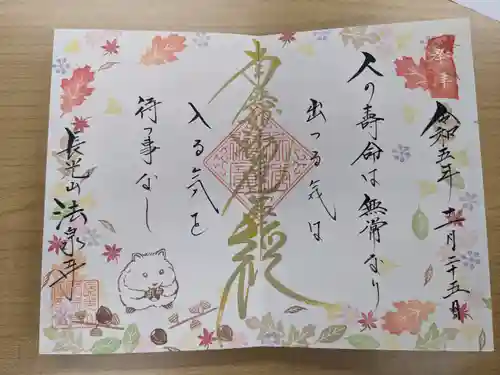 奉拝
令和五年
十一月二十五日
人の寿命は無常なり
出つる気は
南無妙法蓮華経
入る気を
待つ事なし
長光山 法泉寺